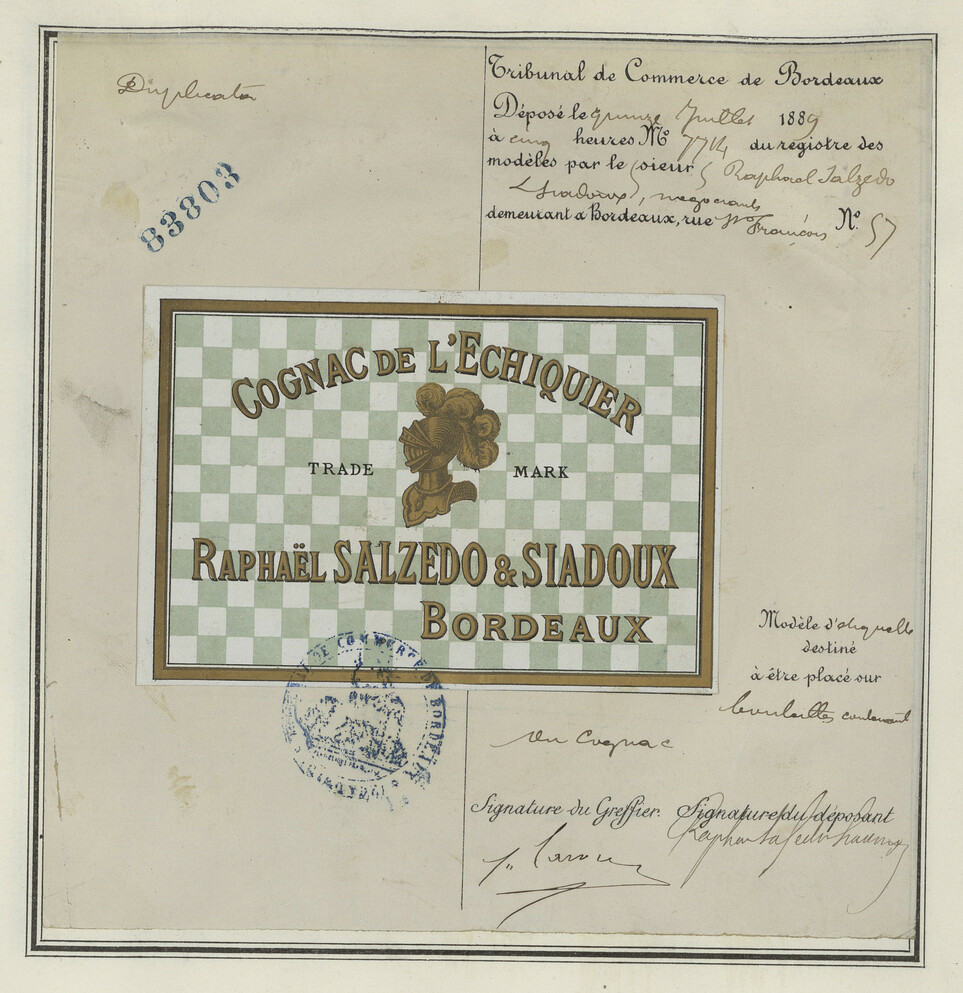 Duplicata
83803
Tribunal de Commerce de Bordeaux
Déposé le quinze Juillet 1889
à cinq heures No 7714 du registre des
modèles par le sieur Raphael Salzedo
& Siadoux, négociants
demeurant à Bordeaux, rue St François No. 57
COGNAC DE L'ECHIQUIER
TRADE MARK
RAPHAËL SALZEDO & SIADOUX
BORDEAUX
Modèle d'étiquette
destiné
à être placé sur
bouteilles contenant
du Cognac
DE COMMERCE DE BORDEAUX
Signature du Greffier. Signature du déposant